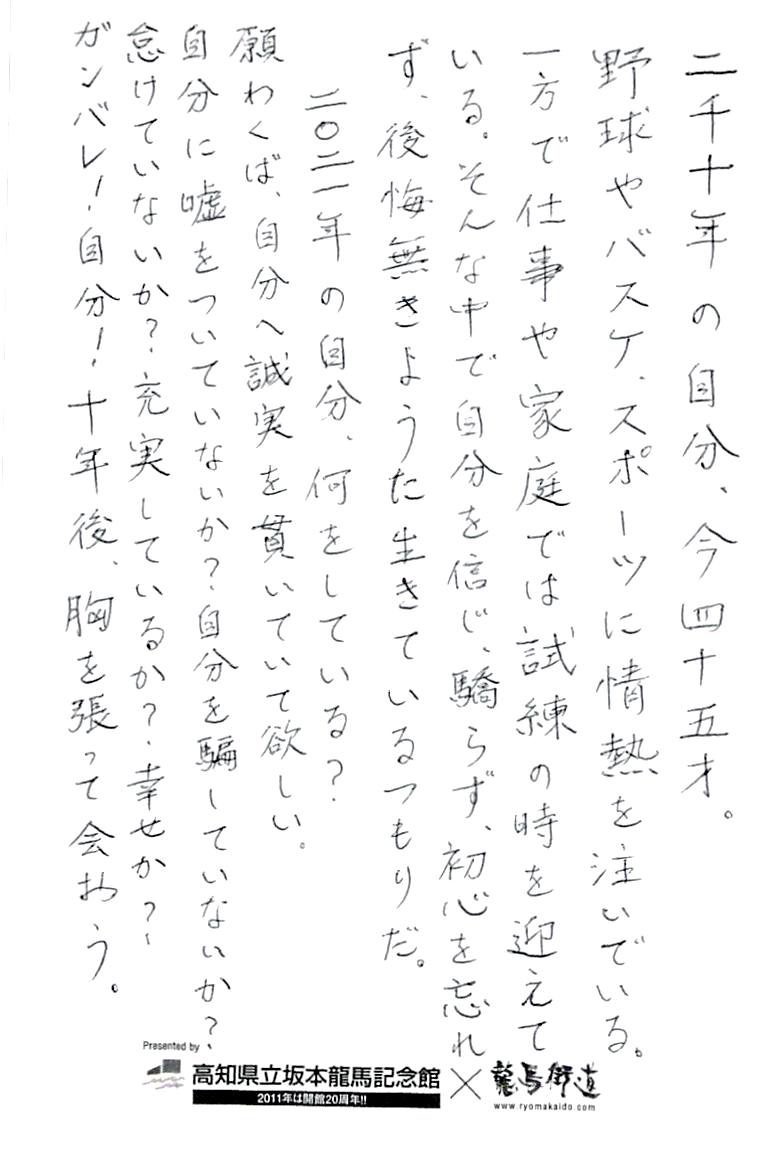 二千十年の自分、今四十五才。
野球やバスケ、スポーツに情熱を注いでいる。
一方で仕事や家庭では試練の時を迎えて
いる。そんな中で自分を信じ、驕らず、初心を忘れ
ず、後悔無きようた生きているつもりだ。
二〇二一年の自分、何をしている?
願わくば、自分へ誠実を貫いていて欲しい。
自分に嘘をついていないか?自分を騙していないか?
怠けていないか?充実しているか?幸せか?
ガンバレ!自分!十年後、胸を張って会おう。
Presented by
高知県立坂本龍馬記念館×龍馬街道
2011年は開館20周年!!
www.ryomakaido.com